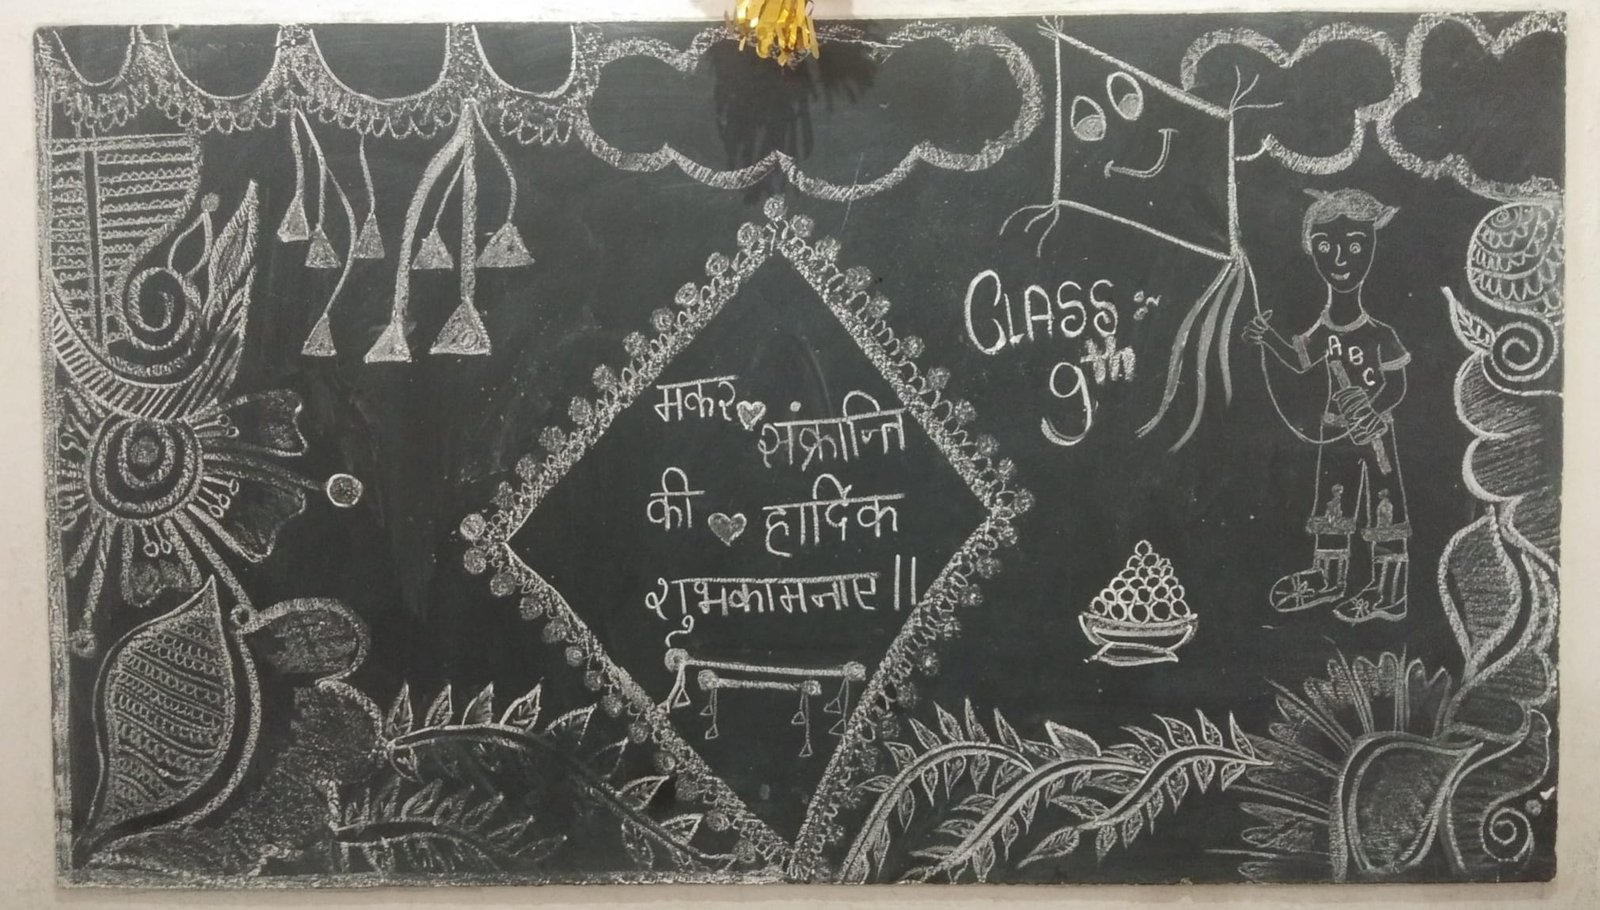 मकर संक्रान्ति
की हार्दिक
शुभकामनाए ||
CLASS :~
9th
ABC